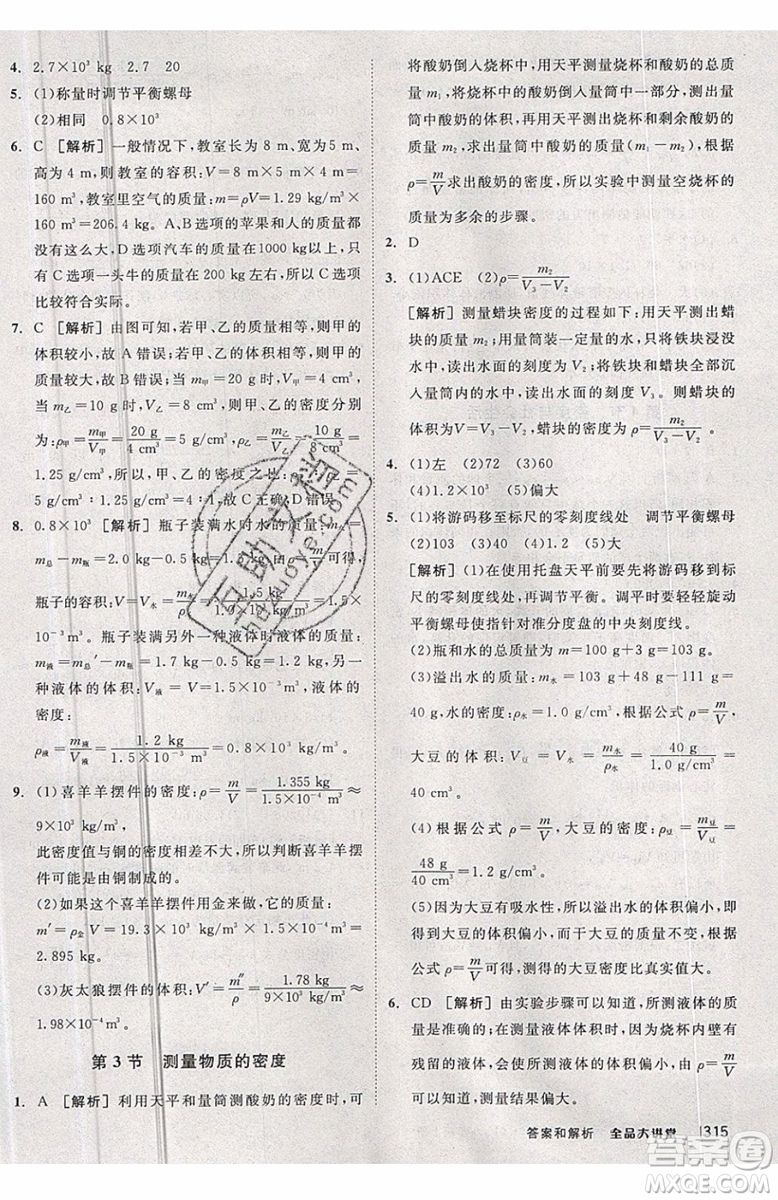 4. 2.7×10³ kg 2.7 20
5. (1)称量时调节平衡螺母
(2)相同 0.8×10³
6. C [解析] 一般情况下,教室长为 8 m、宽为 5 m、
高为 4 m,教室的容积:V=8 m×5 m×4 m=
160 m³,教室里空气的质量:m=ρV=1.29 kg/m³×
160 m³=206.4 kg。A、B选项的苹果和人的质量都
没有这么大,D选项汽车的质量在1000 kg以上,只
有 C 选项一头牛的质量在 200 kg 左右,所以 C 选项
比较符合实际。
7. C [解析] 由图可知,若甲、乙的质量相等,则甲的
体积较小,故 A 错误;若甲、乙的体积相等,则甲的
质量较大,故 B 错误;当 m甲=20 g 时,V甲=4 cm³,
当 m乙=10 g 时,V乙=8 cm³,则甲、乙的密度分别
为:ρ甲=m甲/V甲=20 g/4 cm³=5 g/cm³,ρ乙=m乙/V乙=10 g/8 cm³=
1.25 g/cm³,甲、乙的密度之比:ρ甲∶ρ乙=
5 g/cm³∶1.25 g/cm³=4∶1,故 C 正确,D 错误。
8. 0.8×10³ [解析] 瓶子装满水时水的质量:m水=
m总-m瓶=2.0 kg-0.5 kg=1.5 kg,由 ρ=m/V 可得,
瓶子的容积:V=V水=m水/ρ水=1.5 kg/1.0×10³ kg/m³=1.5×
10⁻³ m³。瓶子装满另一种液体时液体的质量:m液
=m总′-m瓶=1.7 kg-0.5 kg=1.2 kg,另
一种液体的体积:V液=V=1.5×10⁻³ m³,液体的
密度:
ρ液=m液/V液=1.2 kg/1.5×10⁻³ m³=0.8×10³ kg/m³。
9. (1)喜羊羊摆件的密度:ρ=m/V=1.355 kg/1.5×10⁻⁴ m³≈
9×10³ kg/m³,
此密度值与铜的密度差不多,所以判断喜羊羊摆
件可能是由铜制成的。
(2)如果这个喜羊羊摆件用金来做,它的质量:
m′=ρ金V=19.3×10³ kg/m³×1.5×10⁻⁴ m³=
2.895 kg。
(3)灰太狼摆件的体积:V′=m″/ρ=1.78 kg/9×10³ kg/m³≈
1.98×10⁻⁴ m³。
第 3 节 测量物质的密度
1. A [解析] 利用天平和量筒测酸奶的密度时,可
将酸奶倒入烧杯中,用天平测量烧杯和酸奶的总质
量 m₁,将烧杯中的酸奶倒入量筒中一部分,测出
酸奶的体积,再用天平测量烧杯和剩余酸奶的质量
m₂,求出量筒中酸奶的质量 m=m₁-m₂,根据
ρ=m/V求出酸奶的密度,所以实验中测量空烧杯的
质量为多余的步骤。
2. D
3. (1)ACE (2)ρ=m₂/V₃-V₂
[解析] 测量蜡块密度的过程如下:用天平测出蜡
块的质量 m₂;用量筒装一定量的水,只将铁块浸没
水中,读出水面的刻度为 V₂;将铁块和蜡块全部沉
入量筒中,读出水面的刻度为 V₃。则蜡块密度的
表达式为 ρ=m₂/V₃-V₂。
4. (1)左 (2)72 (3)60
(4)1.2×10³ (5)偏大
5. (1)将游码移至标尺的零刻度线处 调节平衡螺母
(2)103 (3)40 (4)1.2 (5)大
[解析] (1)在使用托盘天平前要先将游码移到标
尺的零刻度线处,再调节平衡。调平时要轻轻旋动
平衡螺母使指针对准分度盘的中央刻度线。
(2)瓶和水的总质量:m=100 g+3 g=103 g。
(3)溢出水的质量:m水=103 g+48 g-111 g=
40 g,水的密度:ρ水=1 g/cm³,根据公式 ρ=m/V,
大豆的体积:V豆=V水=m水/ρ水=40 g/1 g/cm³=
40 cm³。
(4)根据公式 ρ=m/V,大豆的密度:ρ=m豆/V豆=
48 g/40 cm³=1.2 g/cm³。
(5)大豆有吸水性,所以溢出水的体积偏小,即
得到的大豆的体积偏小,大豆的质量不变,根据
公式 ρ=m/V可得,测得的大豆密度值比真实值偏大。
6. CD [解析] 由实验步骤可以知道,所测液体的质
量准确,测量液体体积时,由于烧杯内壁
残留的液体,测得液体的体积偏小,由ρ=m/V
答案和解析 全品大讲堂 1315
百助文档
bdzuoye.com
作业精灵